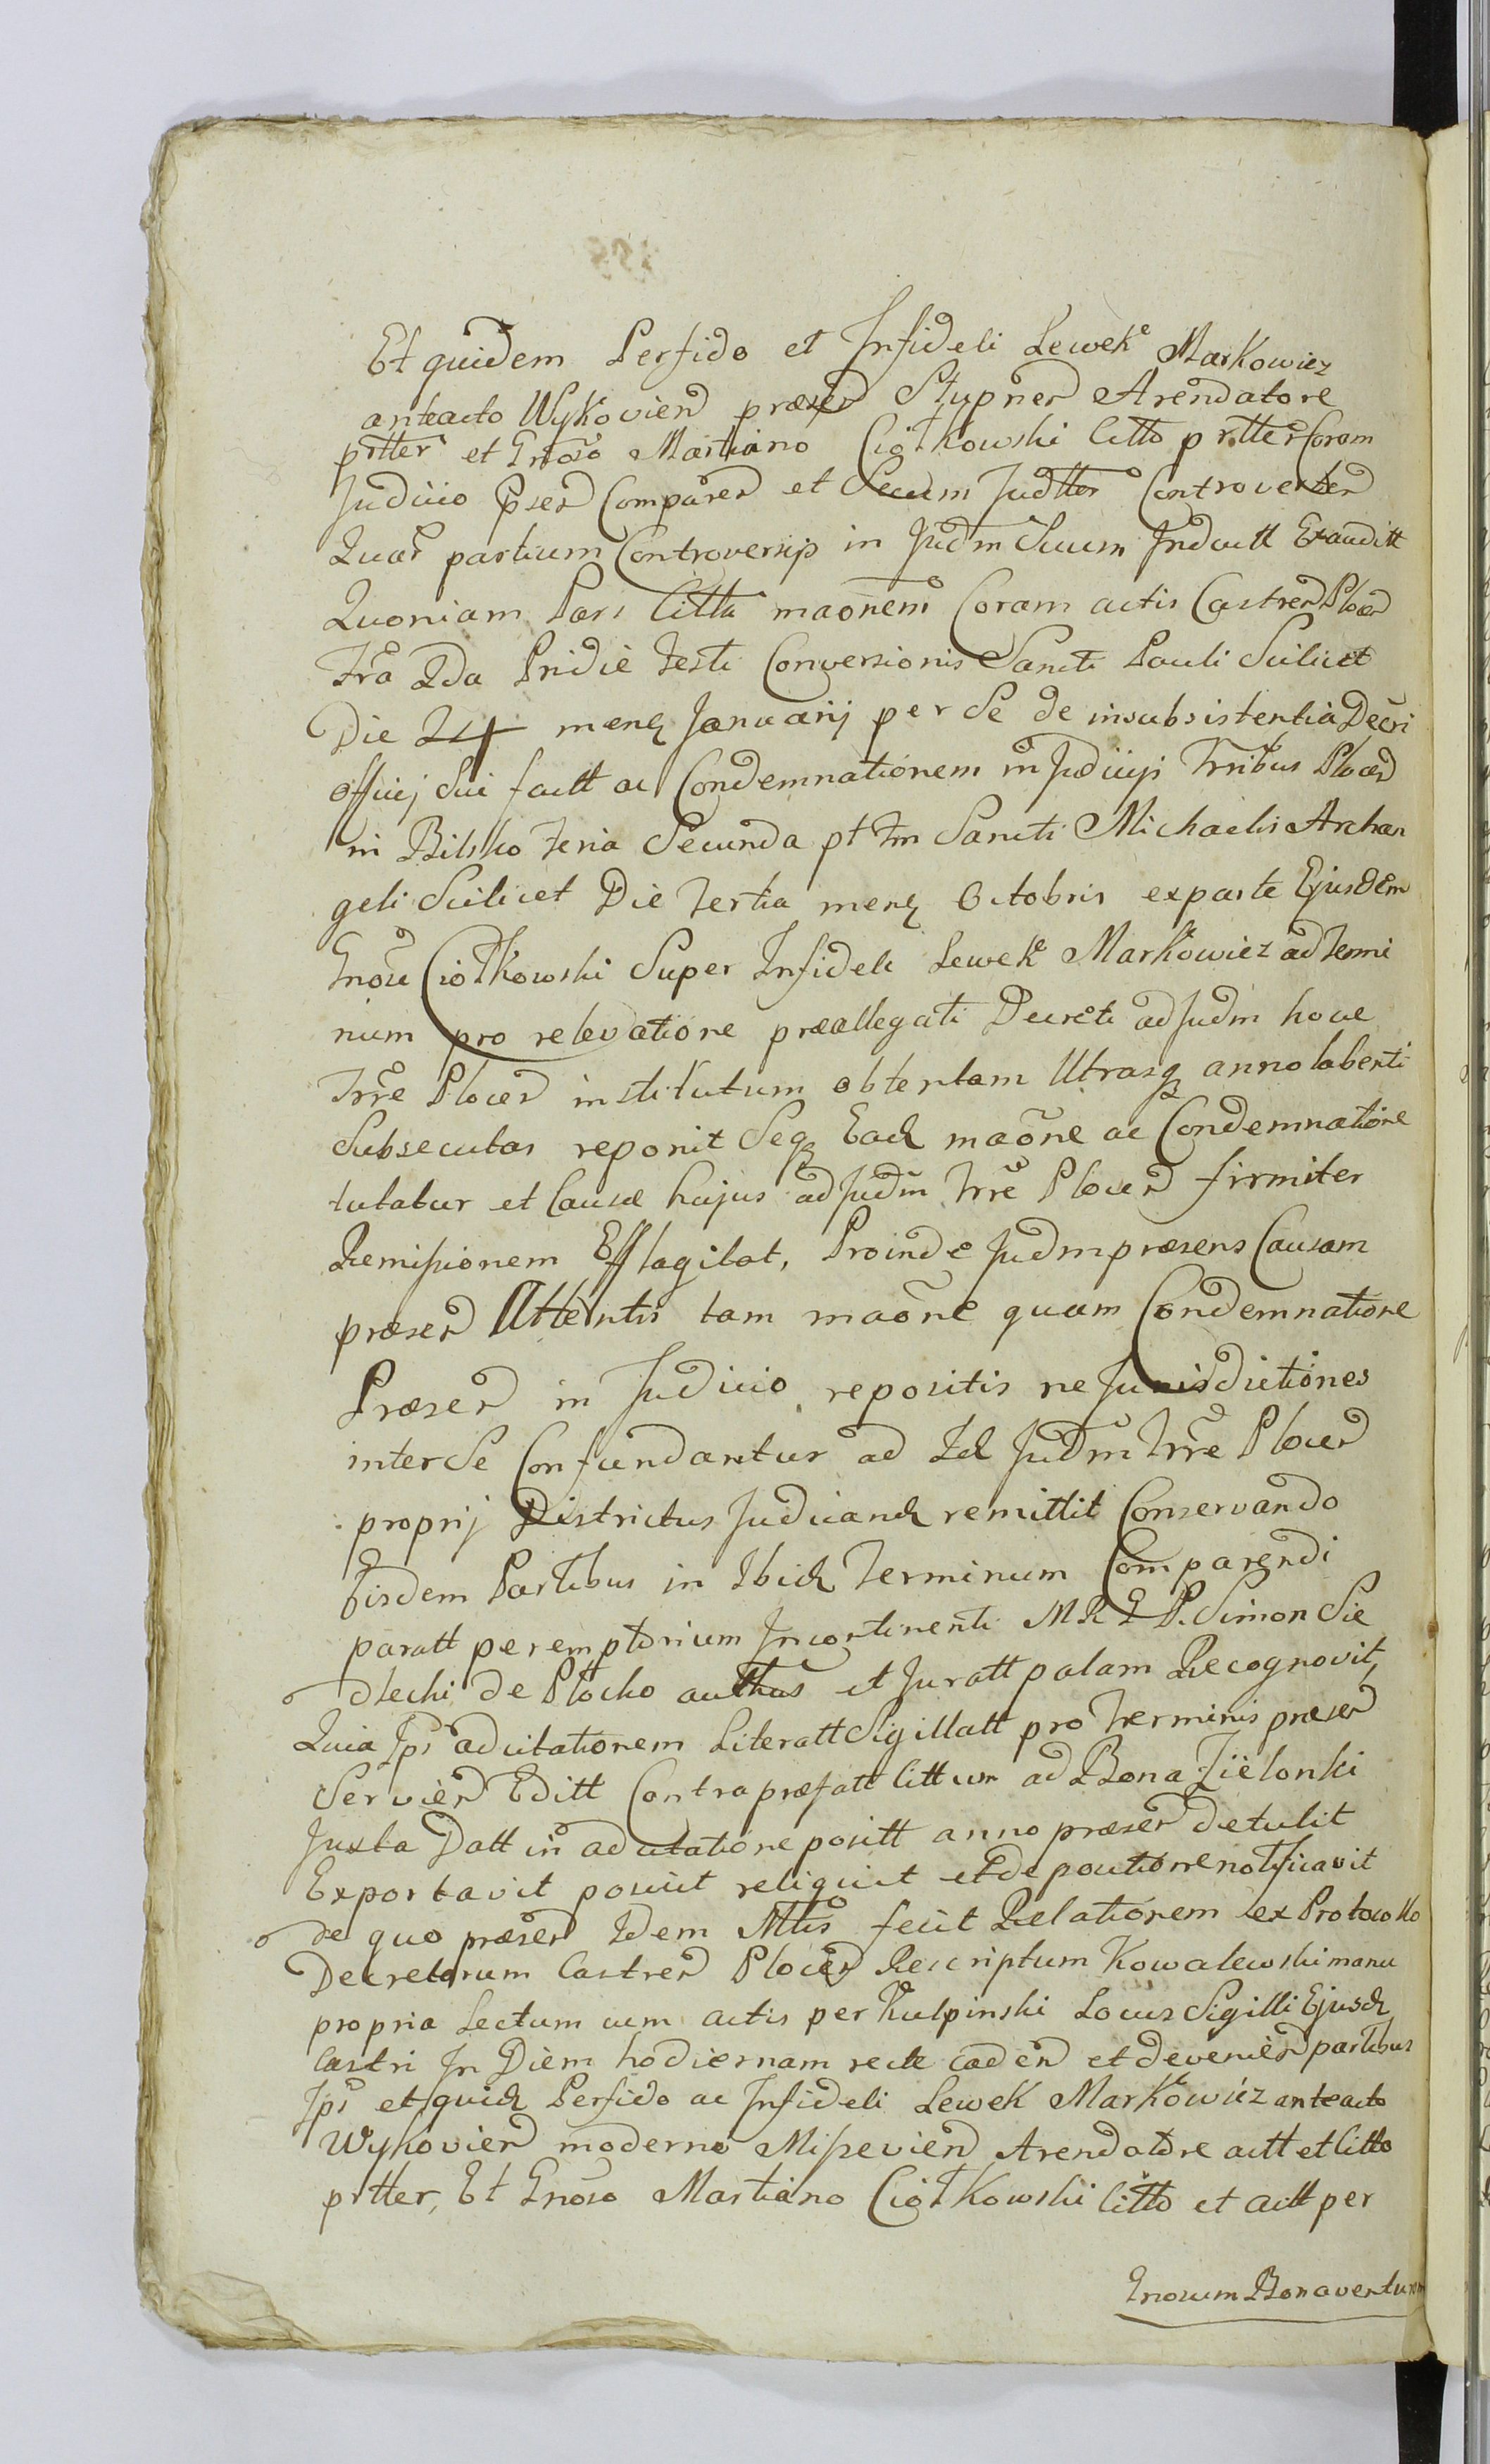 Et quidem Perfido et Infideli Lewek Markowicz
anteacto Wykovien praesen Stupnen Arendatore
prtter et Gnoso Martiano Ciołkowski Citto prtter Coram
Judicio psen Comparen et Secum Judtter Controverten
Quar partium Controversijs in Judm Suum Indutt Exauditt
Quoniam Pars Citta maonem Coram actis Castren Plocen
fra 2da Pridie festi Conversionis Sancti Pauli Scilicet
Die 24 mens Januarij per Se de insubsistentia Decri
officij Sui factt ac Condemnationem in Judicijs Trribus Plocen
in Bilsko feria Secunda pt fm Sancti Michaelis Archan
geli Scilicet Die tertia mens Octobris ex parte Ejusdem
Gnosi Ciołkowski Super Infideli Lewek Markowicz ad Termi
num pro relevatione praeallegati Decreti ad Judm hocce
Trre Plocen institutum obtentam Utrasq anno labenti
Subsecutas reponit Seq Ead maone ac Condemnatione
tutatur et Causae hujus ad Judm Trre Plocen firmiter
Remissionem Efflagitat, Proinde Judm praesens Causam
praesen Attentis tam maone quam Condemnatione
Praesen in Judicio repositis ne Jurisdictiones
inter Se Confundantur ad Id Judm Trre Plocen
proprij Districtus Judicand remittit Conservando
Eisdem Partibus in Ibid Terminum Comparendi
paratt peremptorium Incontinenti M R G P. Simon Sie
dlecki de Płocko authus et Juratt palam Recognovit,
Quia Ips adcitationem Literatt Sigillatt pro Terminis praesen
Servien Editt Contra praefatt Cittum ad Bona Zielonki
Juxta Datt in adcitatione positt anno praesen detulit
Exportavit posuit reliquit et de positione notificavit
de quo praesen Idem Mtis fecit Relationem ex Protocollo
Decretorum Castren Plocen Rescriptum Kowalewski manu
propria Lectum cum actis per Kulpinski Locus Sigilli Ejusd
Castri In Diem hodiernam recte caden et devenien partibus
Ips et quid Perfido ac Infideli Lewek Markowicz anteacto
Wykovien moderno Missevien Arendatore actt et Citto
prtter, Et Gnoso Martiano Ciołkowski Citto et actt per
Gnosum Bonaventuram